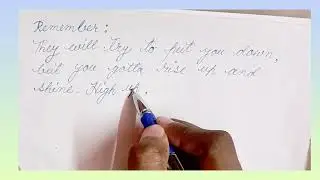 Remember:
They will try to put you down,
but you gotta rise up and
shine. High up.